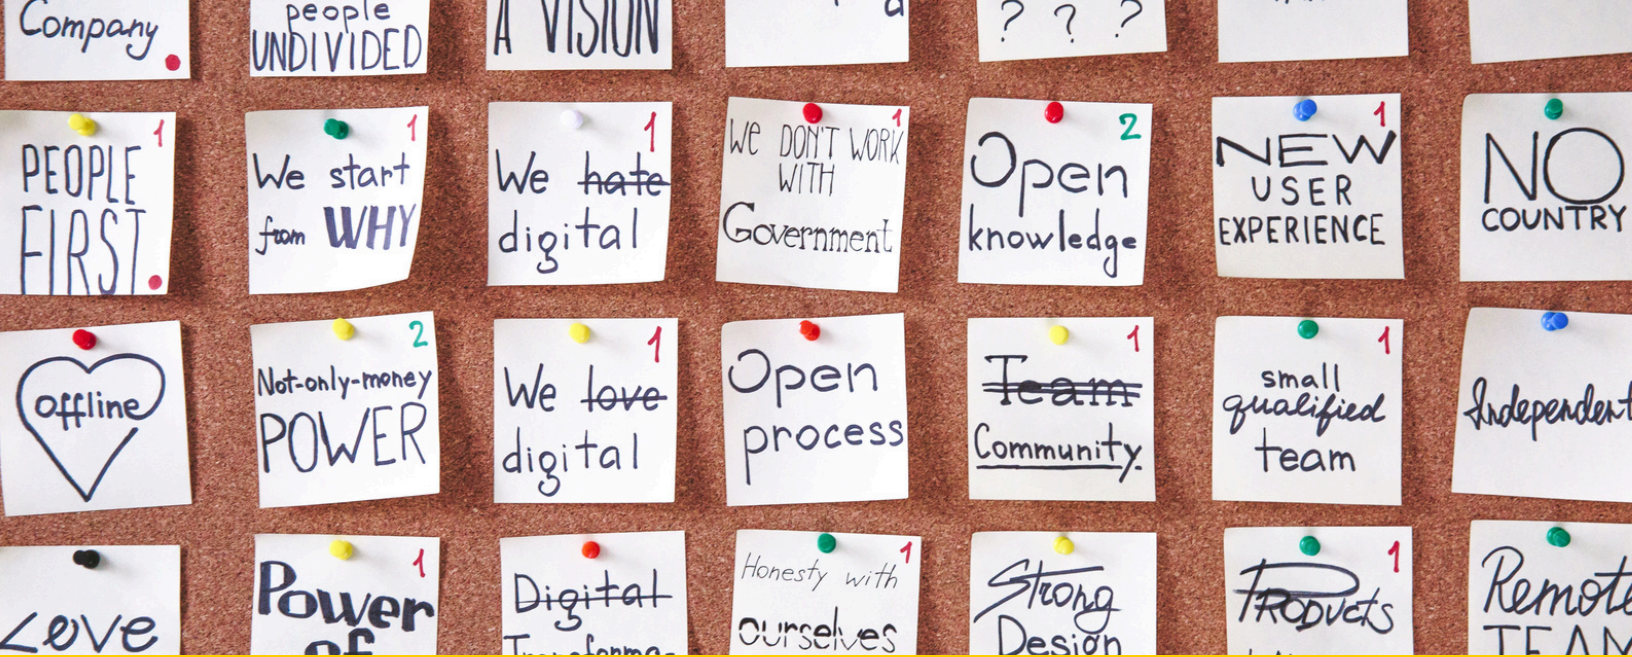 Company
people
UNDIVIDED
A VISION
? ? ?
1
PEOPLE
FIRST
1
We start
from WHY
1
We hate
digital
1
WE DON'T WORK
WITH
Government
2
Open
knowledge
1
NEW
USER
EXPERIENCE
NO
COUNTRY
offline
2
Not-only-money
POWER
1
We love
digital
Open
process
1
Team
Community.
1
small
qualified
team
Independent
Love
1
Power
of
Digital
1
Honesty with
ourselves
Strong
Design
1
PRODUCTS
Remote
TEAM